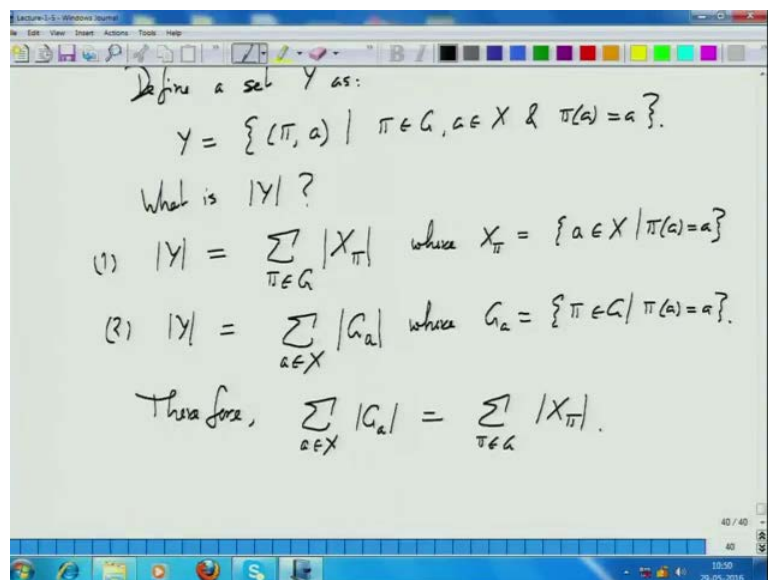 Lecture-1-5 - Windows Journal
Edit View Insert Actions Tools Help
B I
Define a set Y as:
Y = { (π, a) | π ∈ G, a ∈ X & π(a) = a }.
What is |Y| ?
(1) |Y| = ∑_{π∈G} |X_π| where X_π = { a ∈ X | π(a) = a }
(2) |Y| = ∑_{a∈X} |G_a| where G_a = { π ∈ G | π(a) = a }.
Therefore, ∑_{a∈X} |G_a| = ∑_{π∈G} |X_π|.
40 / 40
40
10:50
29-05-2016